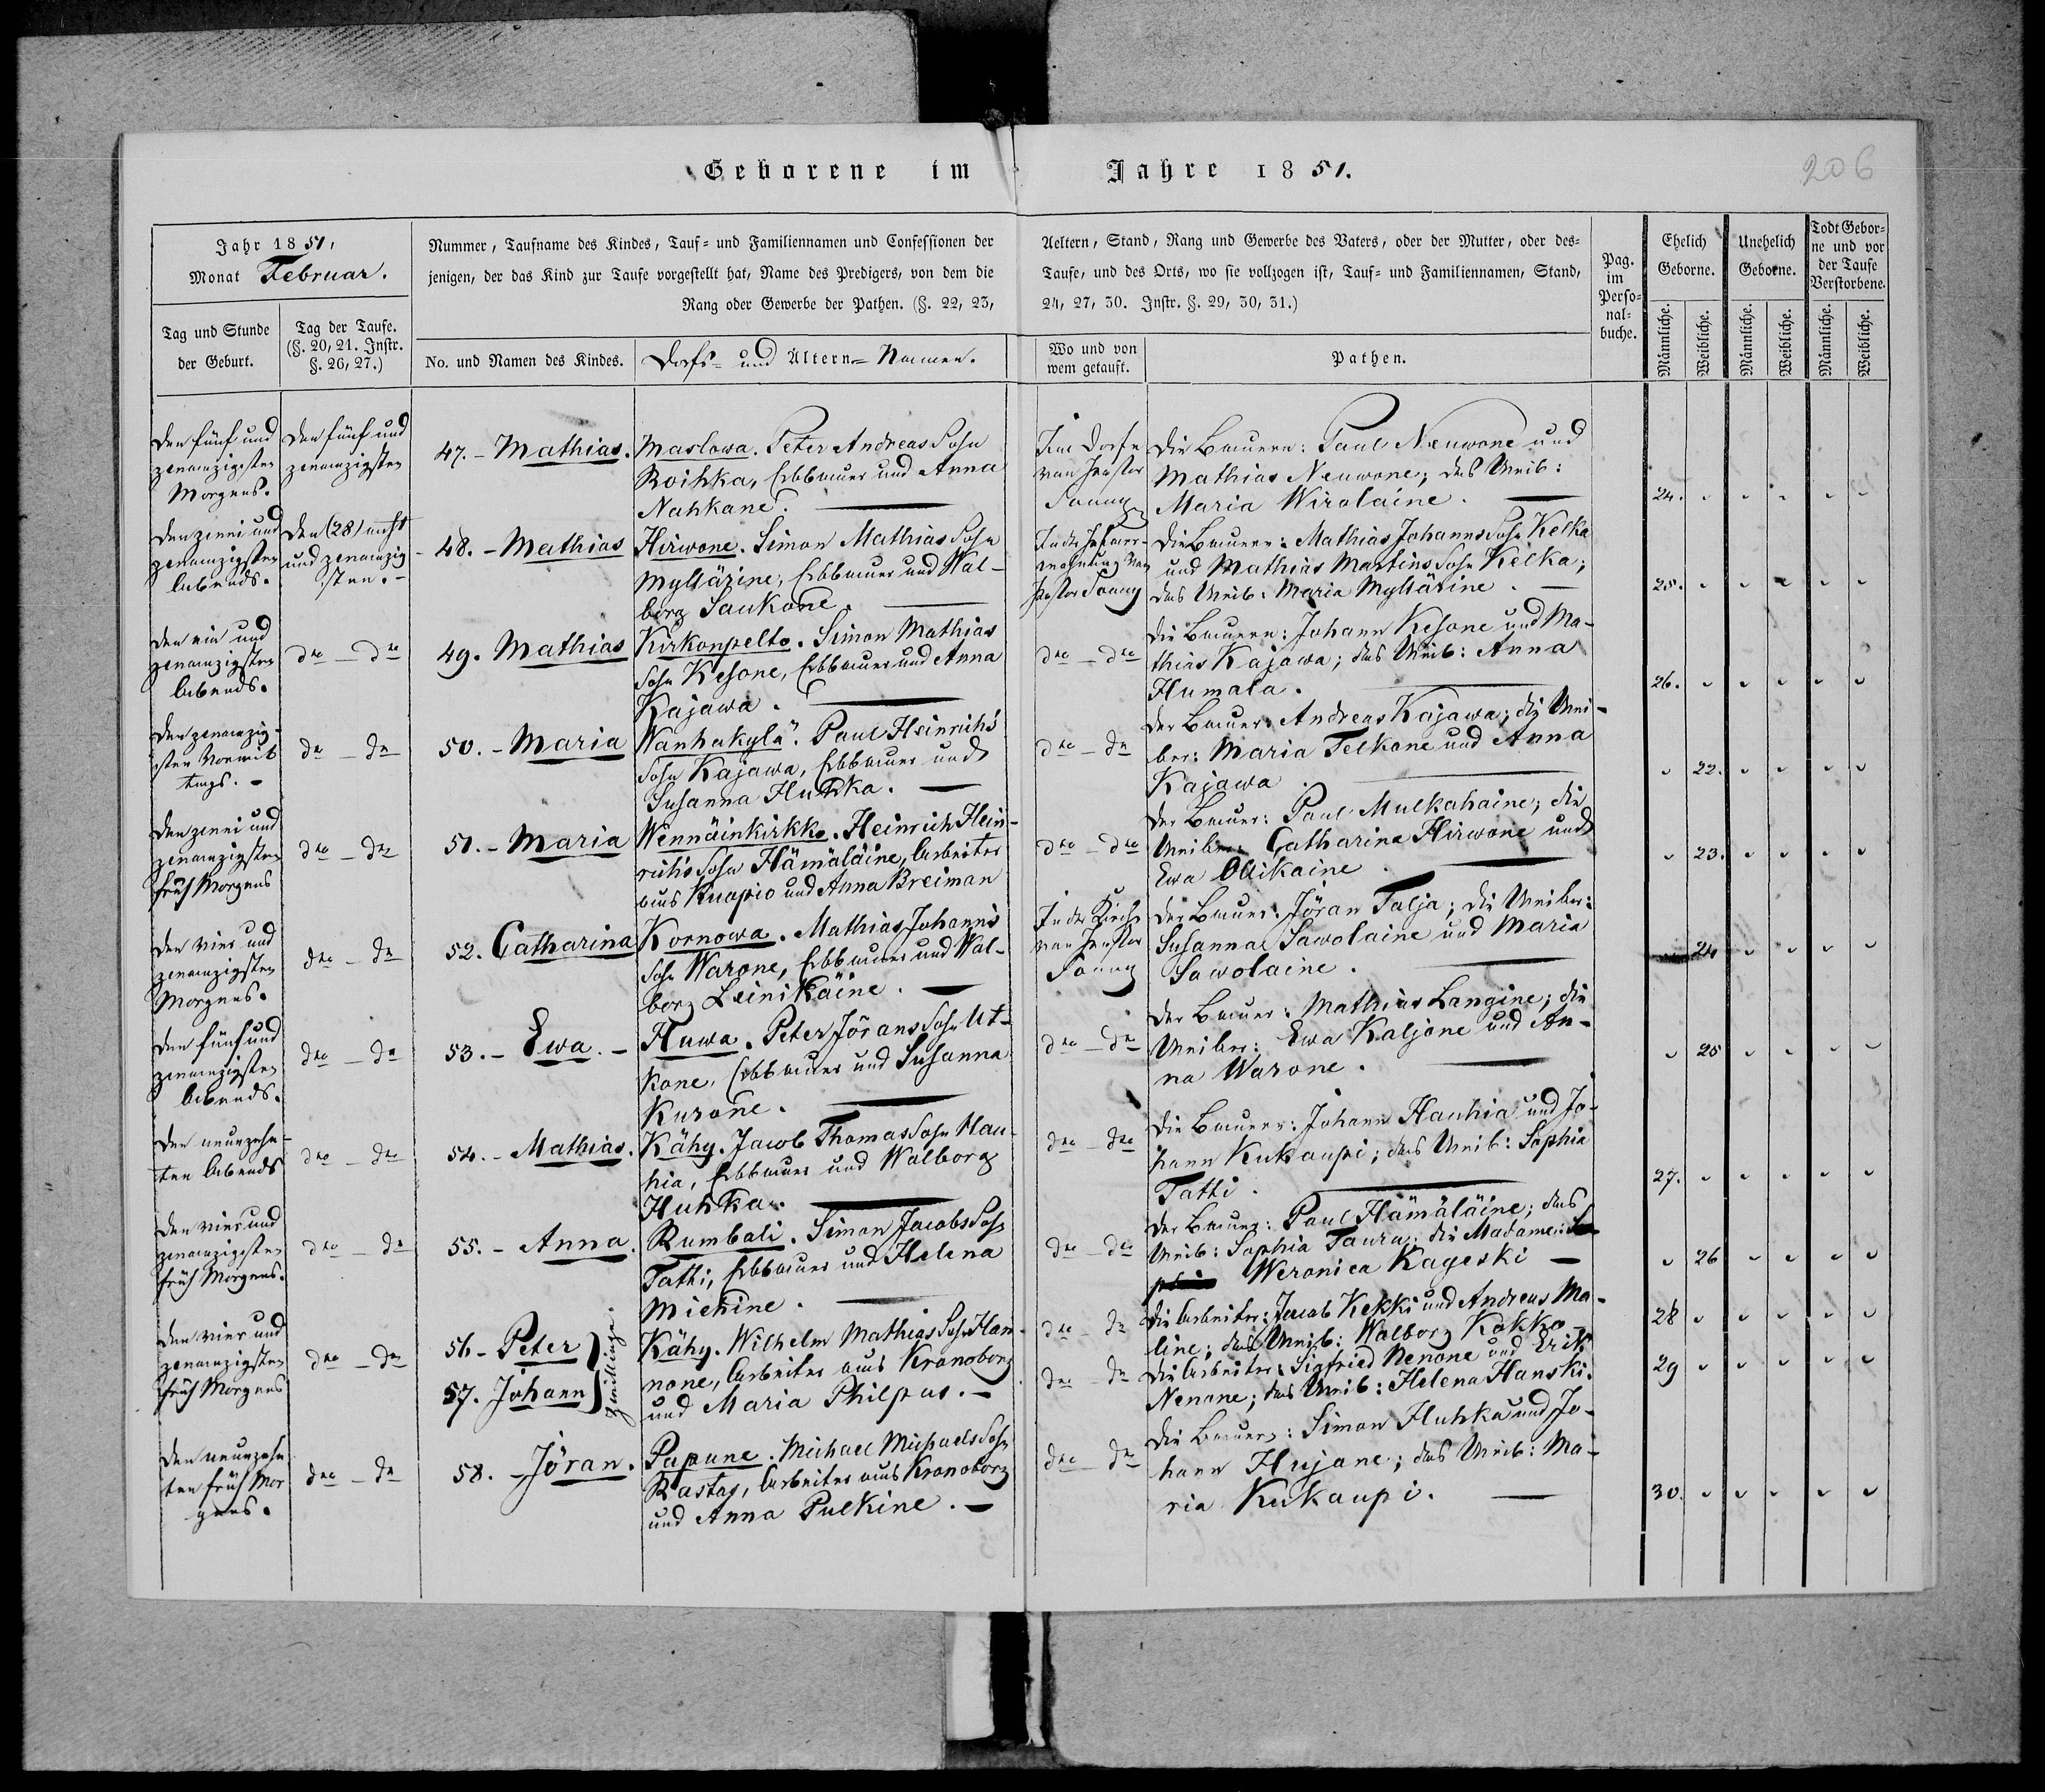 Geborene im Jahre 1851.
206
Jahr 1851,
Monat Februar.
Tag und Stunde
der Geburt.
Tag der Taufe.
(§. 20, 21. Instr.
§. 26, 27.)
Nummer, Taufname des Kindes, Tauf= und Familiennamen und Confessionen der
jenigen, der das Kind zur Taufe vorgestellt hat, Name des Predigers, von dem die
Rang oder Gewerbe der Pathen. (§. 22, 23,
No. und Namen des Kindes.
Dorfs= und Ältern= Namen.
Aeltern, Stand, Rang und Gewerbe des Vaters, oder der Mutter, oder des=
Taufe, und des Orts, wo sie vollzogen ist, Tauf= und Familiennamen, Stand,
24, 27, 30. Instr. §. 29, 30, 31.)
Wo und von
wem getauft.
Pathen.
Pag.
im
Perso=
nal=
buche.
Ehelich
Geborne.
Unehelich
Geborne.
Todt Gebor=
ne und vor
der Taufe
Verstorbene.
Männliche.
Weibliche.
Männliche.
Weibliche.
Männliche.
Weibliche.
Den fünf und
zwanzigsten
Morgens.
Den fünf und
zwanzigsten
47. - Mathias.
Maslowa. Peter Andreas Sohn
Roihka, Erbbauer und Anna
Nahkane.
Im Dorfe
von Pastor
Die Bauern: Paul Neuwone und
Mathias Neuwone; das Weib:
Maria Wirolaine.
24.
Den zwei und
zwanzigsten
Abends.
Den (28) acht
und zwanzig
sten. -
48. - Mathias
Hirwone. Simon Mathias Sohn
Myllärine, Erbbauer und Wal-
borg Saukone.
Die Bauern: Mathias Johanns Sohn Kelka
und Mathias Martins Sohn Kelka;
das Weib: Maria Myllärine.
25.
Den ein und
zwanzigsten
Abends.
dto - dto
49. Mathias
Kirkonpelto. Simon Mathias
Sohn Kesone, Erbbauer und Anna
Kajawa.
dto - dto
Die Bauern: Johann Kesone und Ma-
thias Kajawa; das Weib: Anna
Humala.
26.
Den zwanzig-
sten Vormit
tags. -
dto - dto
50. - Maria
Wanhakylä. Paul Heinrich's
Sohn Kajawa, Erbbauer und
Susanna Huhka.
dto - dto
Der Bauer: Andreas Kajawa; die Wei-
ber: Maria Telkone und Anna
Kajawa
22.
Den zwei und
zwanzigsten
früh Morgens
dto - dto
51. - Maria
Wennäinkirkko. Heinrich Hein-
richs Sohn Hämäläine, Arbeiter
aus Kuapio und Anna Breiman
dto - dto
Der Bauer: Paul Mulkahaine; die
Weiber: Catharina Hirwone und
Ewa Ollikaine
23.
Den vier und
zwanzigsten
Morgens.
dto - dto
52. Catharina
Kornowa. Mathias Johann's
Sohn Warone, Erbbauer und Wal-
borg Leinikäine.
In der Kirche
von Pastor
Der Bauer: Jöran Talja; die Weiber:
Susanna Sawolaine und Maria
Sawolaine.
24
Den fünf und
zwanzigsten
Abends.
dto - dto
53. - Ewa. -
Huwa. Peter Jörans Sohn Ut-
kone, Erbbauer und Susanna
Kurone.
dto - dto
Der Bauer: Mathias Langine; die
Weiber: Ewa Kaljone und An-
na Warone.
25
Den neunzehn-
ten Abends
dto - dto
54. - Mathias.
Kähy. Jacob Thomas Sohn Hau-
hia, Erbbauer und Walborg
Huhka.
dto - dto
Die Bauern: Johann Hauhia und Jo-
hann Kukaupi; das Weib: Sophia
Tatti.
27.
Den vier und
zwanzigsten
früh Morgens.
dto - dto
55. - Anna.
Rumbali. Simon Jacobs Sohn
Tatti, Erbbauer und Helena
Michine.
dto - dto
Der Bauer: Paul Hämäläine; das
Weib: Sophia Taura; die Madame:
Weronica Kageski
26
Den vier und
zwanzigsten
früh Morgens
dto - dto
56 - Peter
57. Johann
Zwillinge.
Kähy. Wilhelm Mathias Sohn Han-
none, Arbeiter aus Kronoborg
und Maria Philpus. -
dto - dto
Die Arbeiter: Jacob Kekki und Andreas Ma-
line; das Weib: Walborg Kokko -
28
dto - dto
Die Arbeiter: Sigfried Nenone und Erik
Nenone; das Weib: Helena Hanski.
29
Den neunzehn
ten früh Mor
gens.
dto - dto
58. - Jöran.
Papune. Michael Michaels Sohn
Rastas, Arbeiter aus Kronoborg
und Anna Pulkine. -
dto - dto
Die Bauern: Simon Huhka und Jo-
hann Hujane; das Weib: Ma-
ria Kukaupi.
30.